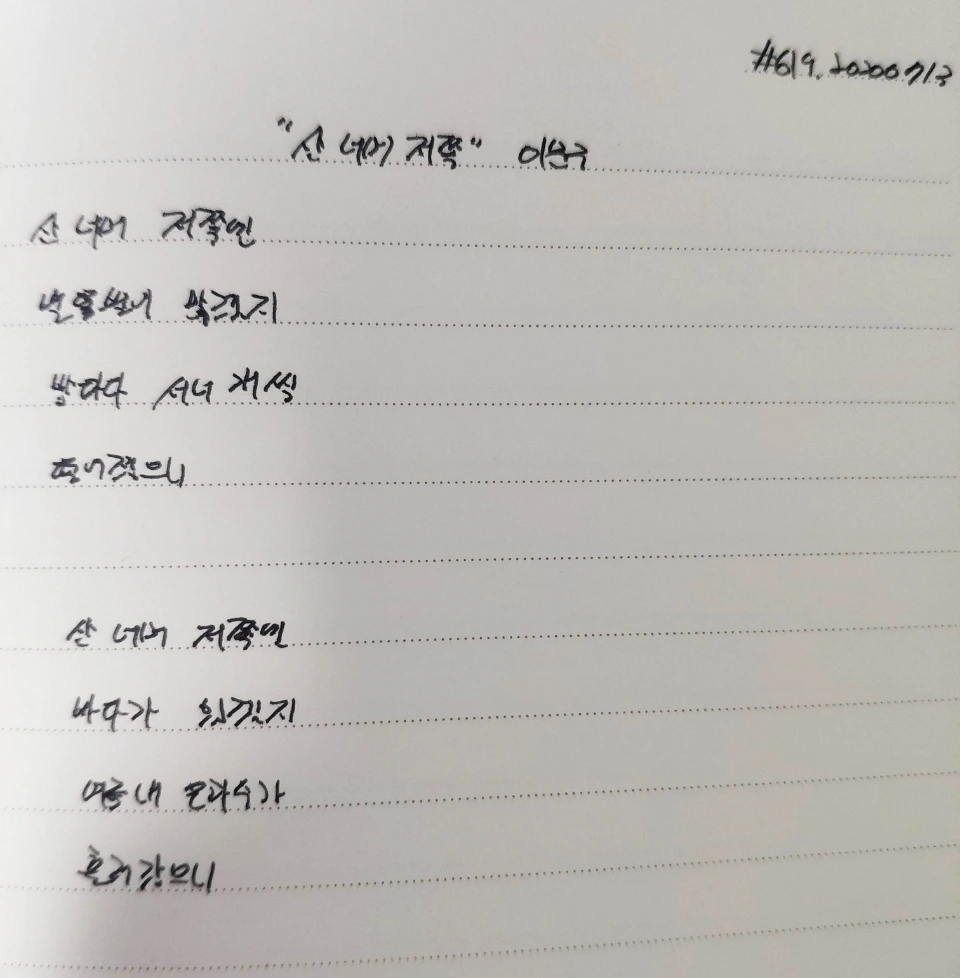 #619. 20200713
"산 너머 저쪽" 이문구
산 너머 저쪽엔
별똥별이 많겠지
밤마다 서너 개씩
떨어졌으니
산 너머 저쪽엔
바다가 있겠지
여름내 은하수가
흘러갔으니